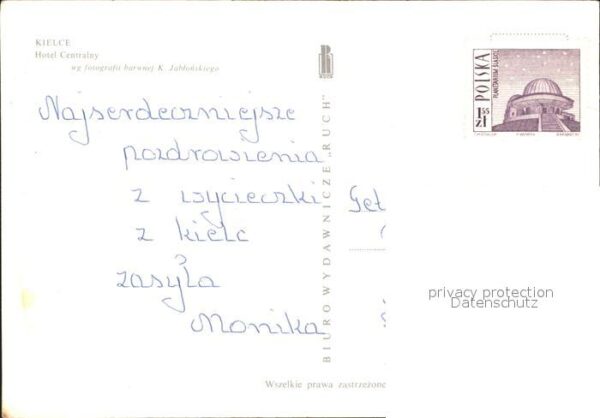 KIELCE
Hotel Centralny
wg fotografii barwnej K. Jabłońskiego
Najserdeczniejsze
pozdrowienia
z wycieczki
z kielc
zasyła
Monika
BIURO WYDAWNICZE „RUCH"
Wszelkie prawa zastrzeżone
POLSKA
PLANETARIUM ŚLĄSKIE
1,55 zł
privacy protection
Datenschutz